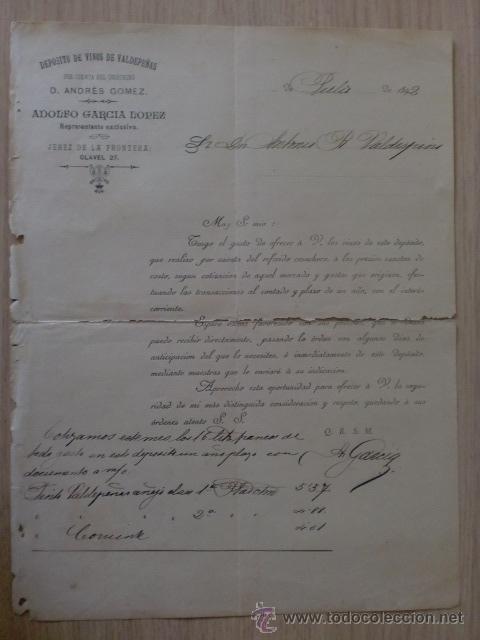 DEPOSITO DE VINOS DE VALDEPEÑAS
POR CUENTA DEL COSECHERO
D. ANDRÉS GOMEZ.
ADOLFO GARCIA LOPEZ
Representante exclusivo.
JEREZ DE LA FRONTERA:
CLAVEL 27.
de Julio de
Sr. Dn. Antonio R Valdespino
Muy Sr. mio:
Tengo el gusto de ofrecer á V. los vinos de este depósito,
que realizo por cuenta del referido cosechero, á los precios exactos de
costo, segun cotizacion de aquel mercado y gastos que originen, efec-
tuando las transacciones al contado y plazo de un año, con el interés
corriente.
Espero verme favorecido con sus pedidos, que
puede recibir directamente, pasando la órden con algunos dias de
anticipacion del que lo necesiten, ó inmediatamente de este Depósito,
mediante muestras que le enviaré á su indicacion.
Aprovecho esta oportunidad para ofrecer á V. la segu-
ridad de mi mas distinguida consideracion y respeto, quedando á sus
órdenes atento S. S.
Q. B. S. M.
A Garcia
Cotizamos este mes los 16 lits. franco de
todo gasto en este deposito un año plazo con
documento a
Tinto Valdepeñas añejo clase 1ª 5 37
" " " 2ª
" Corriente
www.todocoleccion.net